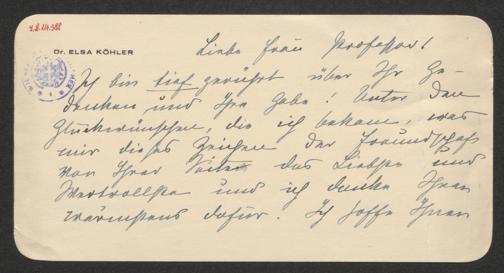 Dr. ELSA KÖHLER
Liebe Frau Professor!
Ich bin tief gerührt über Ihr Ge-
denken und Ihre Gabe! Unter den
Glückwünschen, die ich bekam, war
mir dieses Zeichen der Freundschaft
von Ihrer Seite das Liebste und
Wertvollste und ich danke Ihnen
wärmstens dafür. Ich hoffe Ihnen